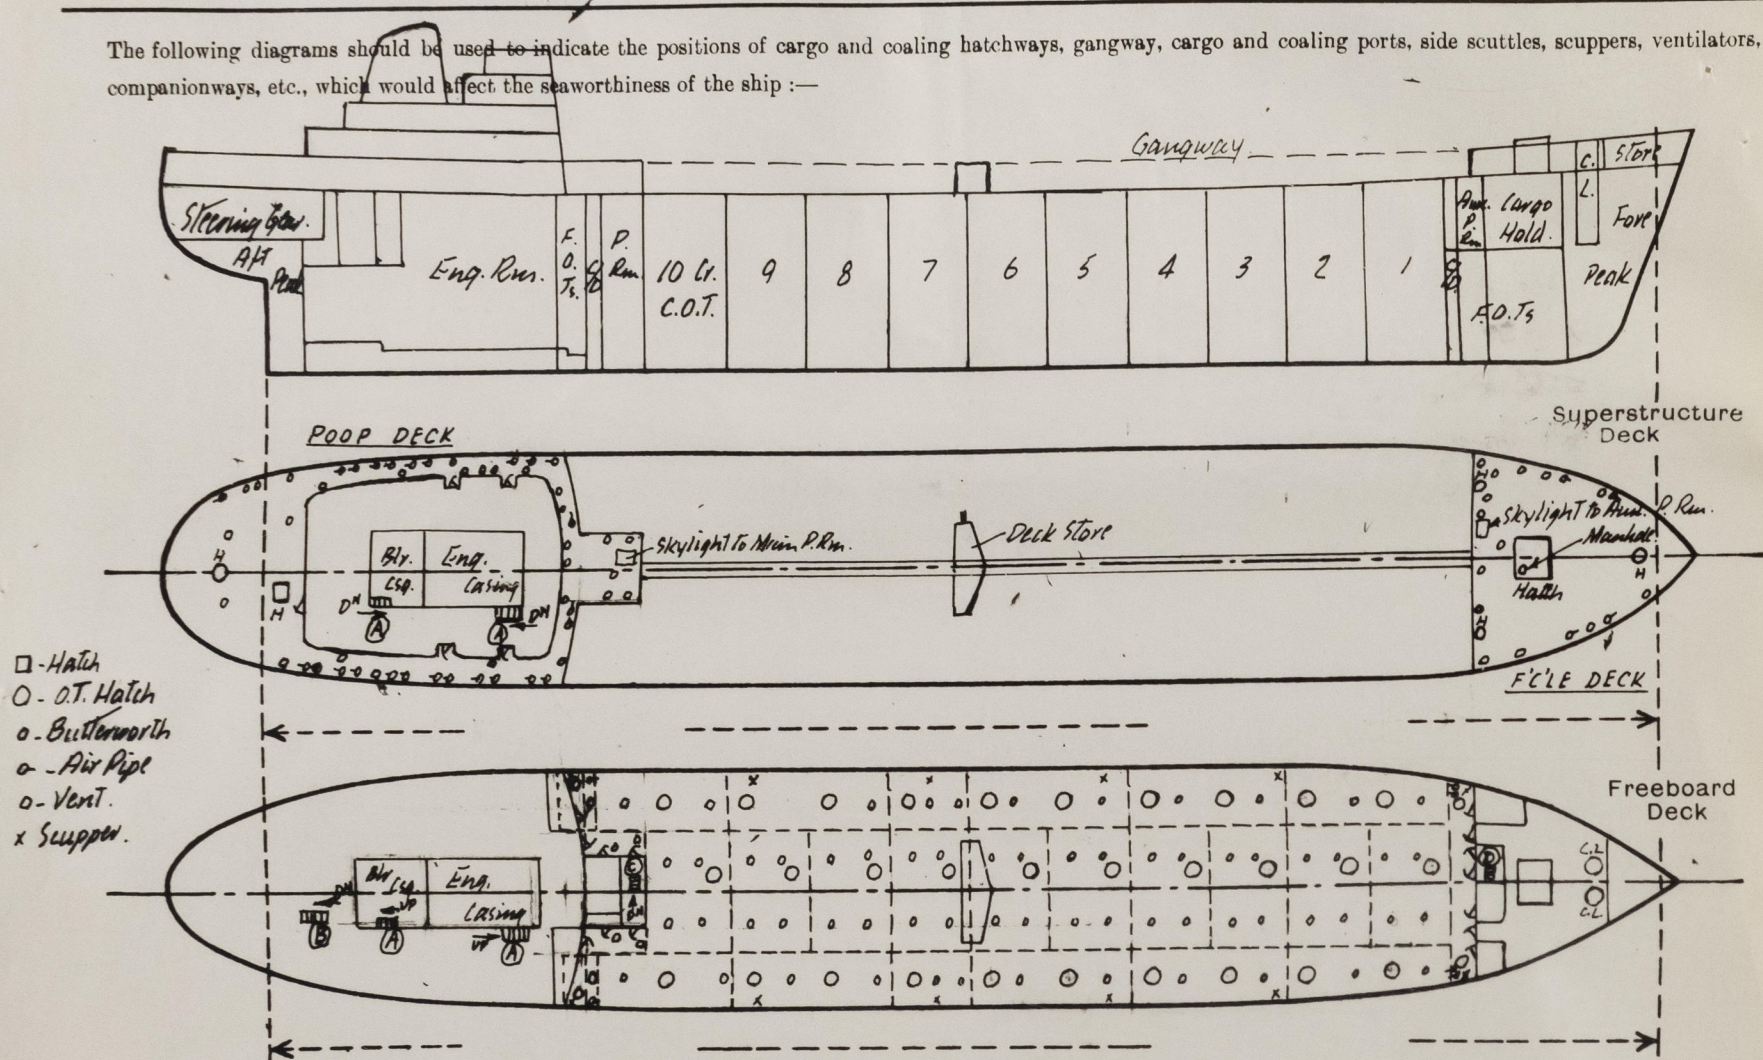 The following diagrams should be used to indicate the positions of cargo and coaling hatchways, gangway, cargo and coaling ports, side scuttles, scuppers, ventilators,
companionways, etc., which would affect the seaworthiness of the ship :—
Gangway
Steering Gear.
Aft
Peak
Eng. Rm.
F.
O.
Ts.
P.
Rm.
10 Cr.
C.O.T.
9
8
7
6
5
4
3
2
1
Aux.
P.
Rm
Cargo
Hold.
F.O.Ts
C.
L.
Store
Fore
Peak
Superstructure
Deck
POOP DECK
H
H
Blr.
Csg.
Eng.
Casing
DN
A
A
DN
Skylight to Main P.Rm.
Deck Store
H
Skylight to Aux. P. Rm.
Manhole
Hatch
H
H
F'C'LE DECK
□ - Hatch
O - O.T. Hatch
o - Butterworth
o - Air Pipe
o - Vent.
x Scupper.
Freeboard
Deck
Blr
Csg.
Eng.
Casing
DN
UP
B
A
UP
A
DN
x
x
x
x
x
x
x
x
C.L
C.L